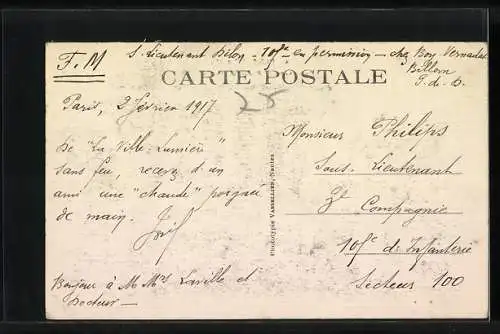 F.M
S. Lieutenant Bilon - 105e en permission - chez Boy Vernadat
Billom
P.-de-D.
CARTE POSTALE
25
Paris, 2 février 1917
De "La Ville Lumière"
sans feu, recevez d'un
ami une "chaude" poignée
de main.
Bonjour à M Mrs Laville et
Docteur —
Phototypie Vassellier, Nantes
Monsieur Philips
Sous-Lieutenant
Compagnie
105e d'Infanterie
Secteur 100